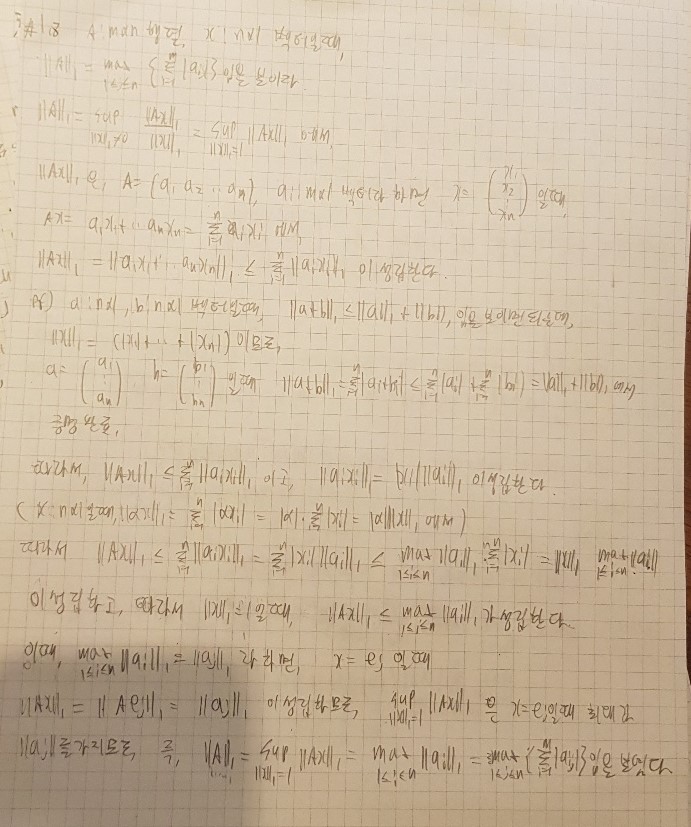 A : m×n 행렬, x : n×1 벡터일때,
||A||₁ = max_{1≤j≤n} {Σ_{i=1}^{m} |aᵢⱼ|} 임을 보이라.
||A||₁ = sup_{||x||₁≠0} ||Ax||₁/||x||₁ = sup_{||x||₁=1} ||Ax||₁ 에서,
||Ax||₁ 은, A = (a₁ a₂ … aₙ), aᵢ : m×1 벡터라 하면 x = (x₁ x₂ ⋮ xₙ) 일때,
Ax = a₁x₁ + … aₙxₙ = Σ_{i=1}^{n} aᵢxᵢ 에서,
||Ax||₁ = ||a₁x₁ + … aₙxₙ||₁ ≤ Σ_{i=1}^{n} ||aᵢxᵢ||₁ 이 성립한다.
pf) a : n×1, b : n×1 벡터일때, ||a+b||₁ ≤ ||a||₁ + ||b||₁ 임을 보이면 되는데,
||x||₁ = (|x₁| + … + |xₙ|) 이므로,
a = (a₁ ⋮ aₙ) b = (b₁ ⋮ bₙ) 일때 ||a+b||₁ = Σ_{i=1}^{n} |aᵢ+bᵢ| ≤ Σ_{i=1}^{n} |aᵢ| + Σ_{i=1}^{n} |bᵢ| = ||a||₁ + ||b||₁ 에서
증명 완료,
따라서, ||Ax||₁ ≤ Σ_{i=1}^{n} ||aᵢxᵢ||₁ 이고, ||aᵢxᵢ||₁ = |xᵢ| ||aᵢ||₁ 이 성립한다.
(x : n×1 일때, ||αx||₁ = Σ_{i=1}^{n} |αxᵢ| = |α|·Σ_{i=1}^{n} |xᵢ| = |α| ||x||₁ 에서)
따라서 ||Ax||₁ ≤ Σ_{i=1}^{n} ||aᵢxᵢ||₁ = Σ_{i=1}^{n} |xᵢ| ||aᵢ||₁ ≤ max_{1≤i≤n} ||aᵢ||₁ Σ_{i=1}^{n} |xᵢ| = ||x||₁ max_{1≤i≤n} ||aᵢ||₁
이 성립하고, 따라서 ||x||₁=1 일때, ||Ax||₁ ≤ max_{1≤i≤n} ||aᵢ||₁ 가 성립한다.
이때, max_{1≤i≤n} ||aᵢ||₁ = ||aⱼ||₁ 라 하면, x = eⱼ 일때
||Ax||₁ = ||Aeⱼ||₁ = ||aⱼ||₁ 이 성립하므로, sup_{||x||₁=1} ||Ax||₁ 은 x = eⱼ일때 최대값
||aⱼ||를 가지므로, 즉, ||A||₁ = sup_{||x||₁=1} ||Ax||₁ = max_{1≤i≤n} ||aᵢ||₁ = max_{1≤j≤n} {Σ_{i=1}^{m} |aᵢⱼ|} 임을 보였다